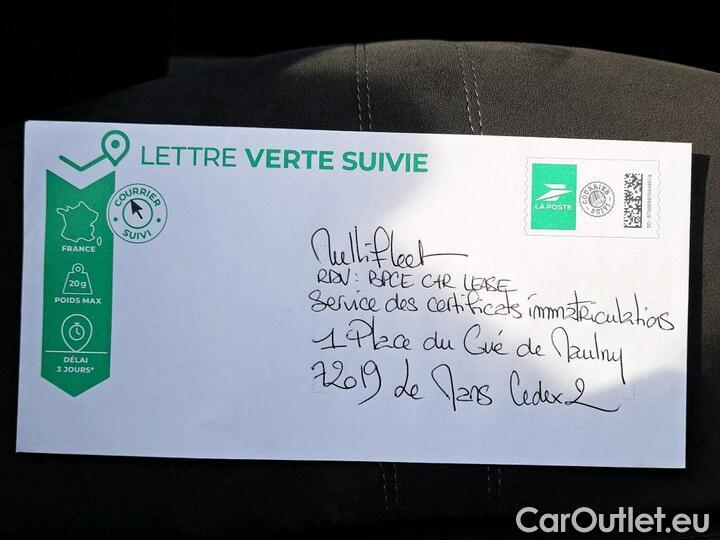 LETTRE VERTE SUIVIE
COURRIER SUIVI
FRANCE
20 g
POIDS MAX
DÉLAI
3 JOURS*
LA POSTE
COURRIER SUIVI
Multifleet
RDV : BPCE CAR LEASE
Service des certificats immatriculations
1 Place du Gué de Maulny
72019 Le Mans Cedex 2
CarOutlet.eu